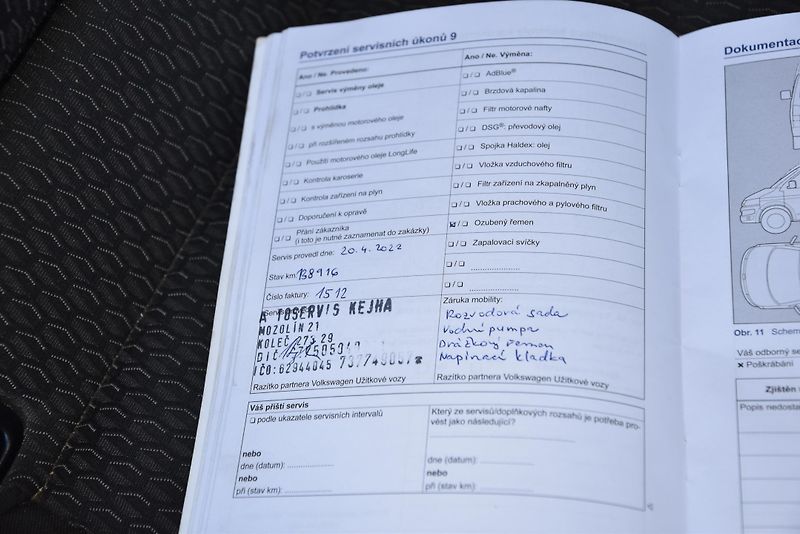 Potvrzení servisních úkonů 9
Ano / Ne. Provedeno:
❏ / ❏ Servis výměny oleje
❏ / ❏ Prohlídka
❏ / ❏ s výměnou motorového oleje
❏ / ❏ při rozšířeném rozsahu prohlídky
❏ / ❏ Použití motorového oleje LongLife
❏ / ❏ Kontrola karoserie
❏ / ❏ Kontrola zařízení na plyn
❏ / ❏ Doporučení k opravě
❏ / ❏ Přání zákazníka
(i toto je nutné zaznamenat do zakázky)
Servis provedl dne: 20.4.2022
Stav km: 138916
Číslo faktury: 1512
A TOSERVIS KEJHA
MOZOLÍN 21
KOLEČ 273 29
DIČ
IČO: 62944045
Razítko partnera Volkswagen Užitkové vozy
Ano / Ne. Výměna:
❏ / ❏ AdBlue®
❏ / ❏ Brzdová kapalina
❏ / ❏ Filtr motorové nafty
❏ / ❏ DSG®: převodový olej
❏ / ❏ Spojka Haldex: olej
❏ / ❏ Vložka vzduchového filtru
❏ / ❏ Filtr zařízení na zkapalněný plyn
❏ / ❏ Vložka prachového a pylového filtru
☒ / ❏ Ozubený řemen
❏ / ❏ Zapalovací svíčky
❏ / ❏ ....................
❏ / ❏ ....................
Záruka mobility:
Rozvodová sada
Vodní pumpa
Drážkový řemen
Napínací kladka
Razítko partnera Volkswagen Užitkové vozy
Váš příští servis
❏ podle ukazatele servisních intervalů
nebo
dne (datum): ....................
nebo
při (stav km): ....................
Který ze servisů/doplňkových rozsahů je potřeba pro-
vést jako následující?
dne (datum): ....................
nebo
při (stav km): ....................
Dokumentac
Obr. 11 Schem
Váš odborný se
× Poškrábání
Zjištěn
Popis nedosta